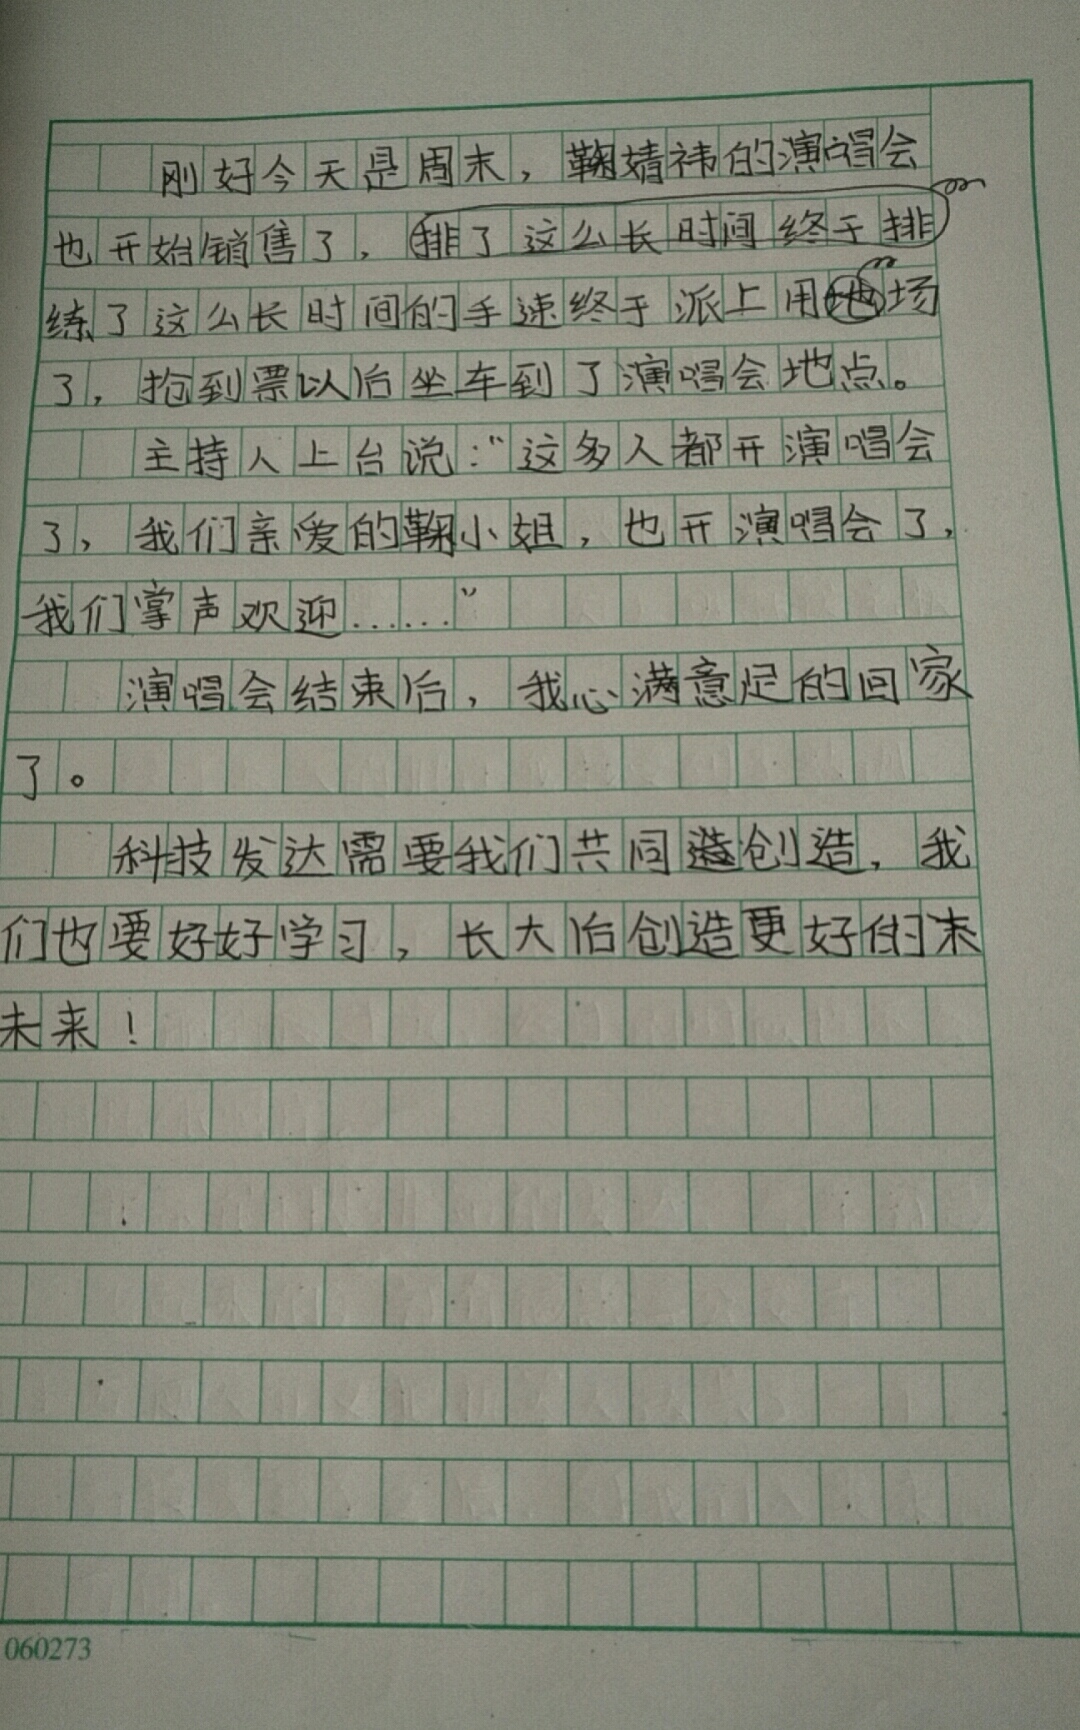 刚好今天是周末，鞠婧祎的演唱会
也开始销售了，排了这么长时间终于排
练了这么长时间的手速终于派上用地场
了，抢到票以后坐车到了演唱会地点。
主持人上台说：“这多人都开演唱会
了，我们亲爱的鞠小姐，也开演唱会了，
我们掌声欢迎……”
演唱会结束后，我心满意足的回家
了。
科技发达需要我们共同造创造，我
们也要好好学习，长大后创造更好的未
未来！
060273